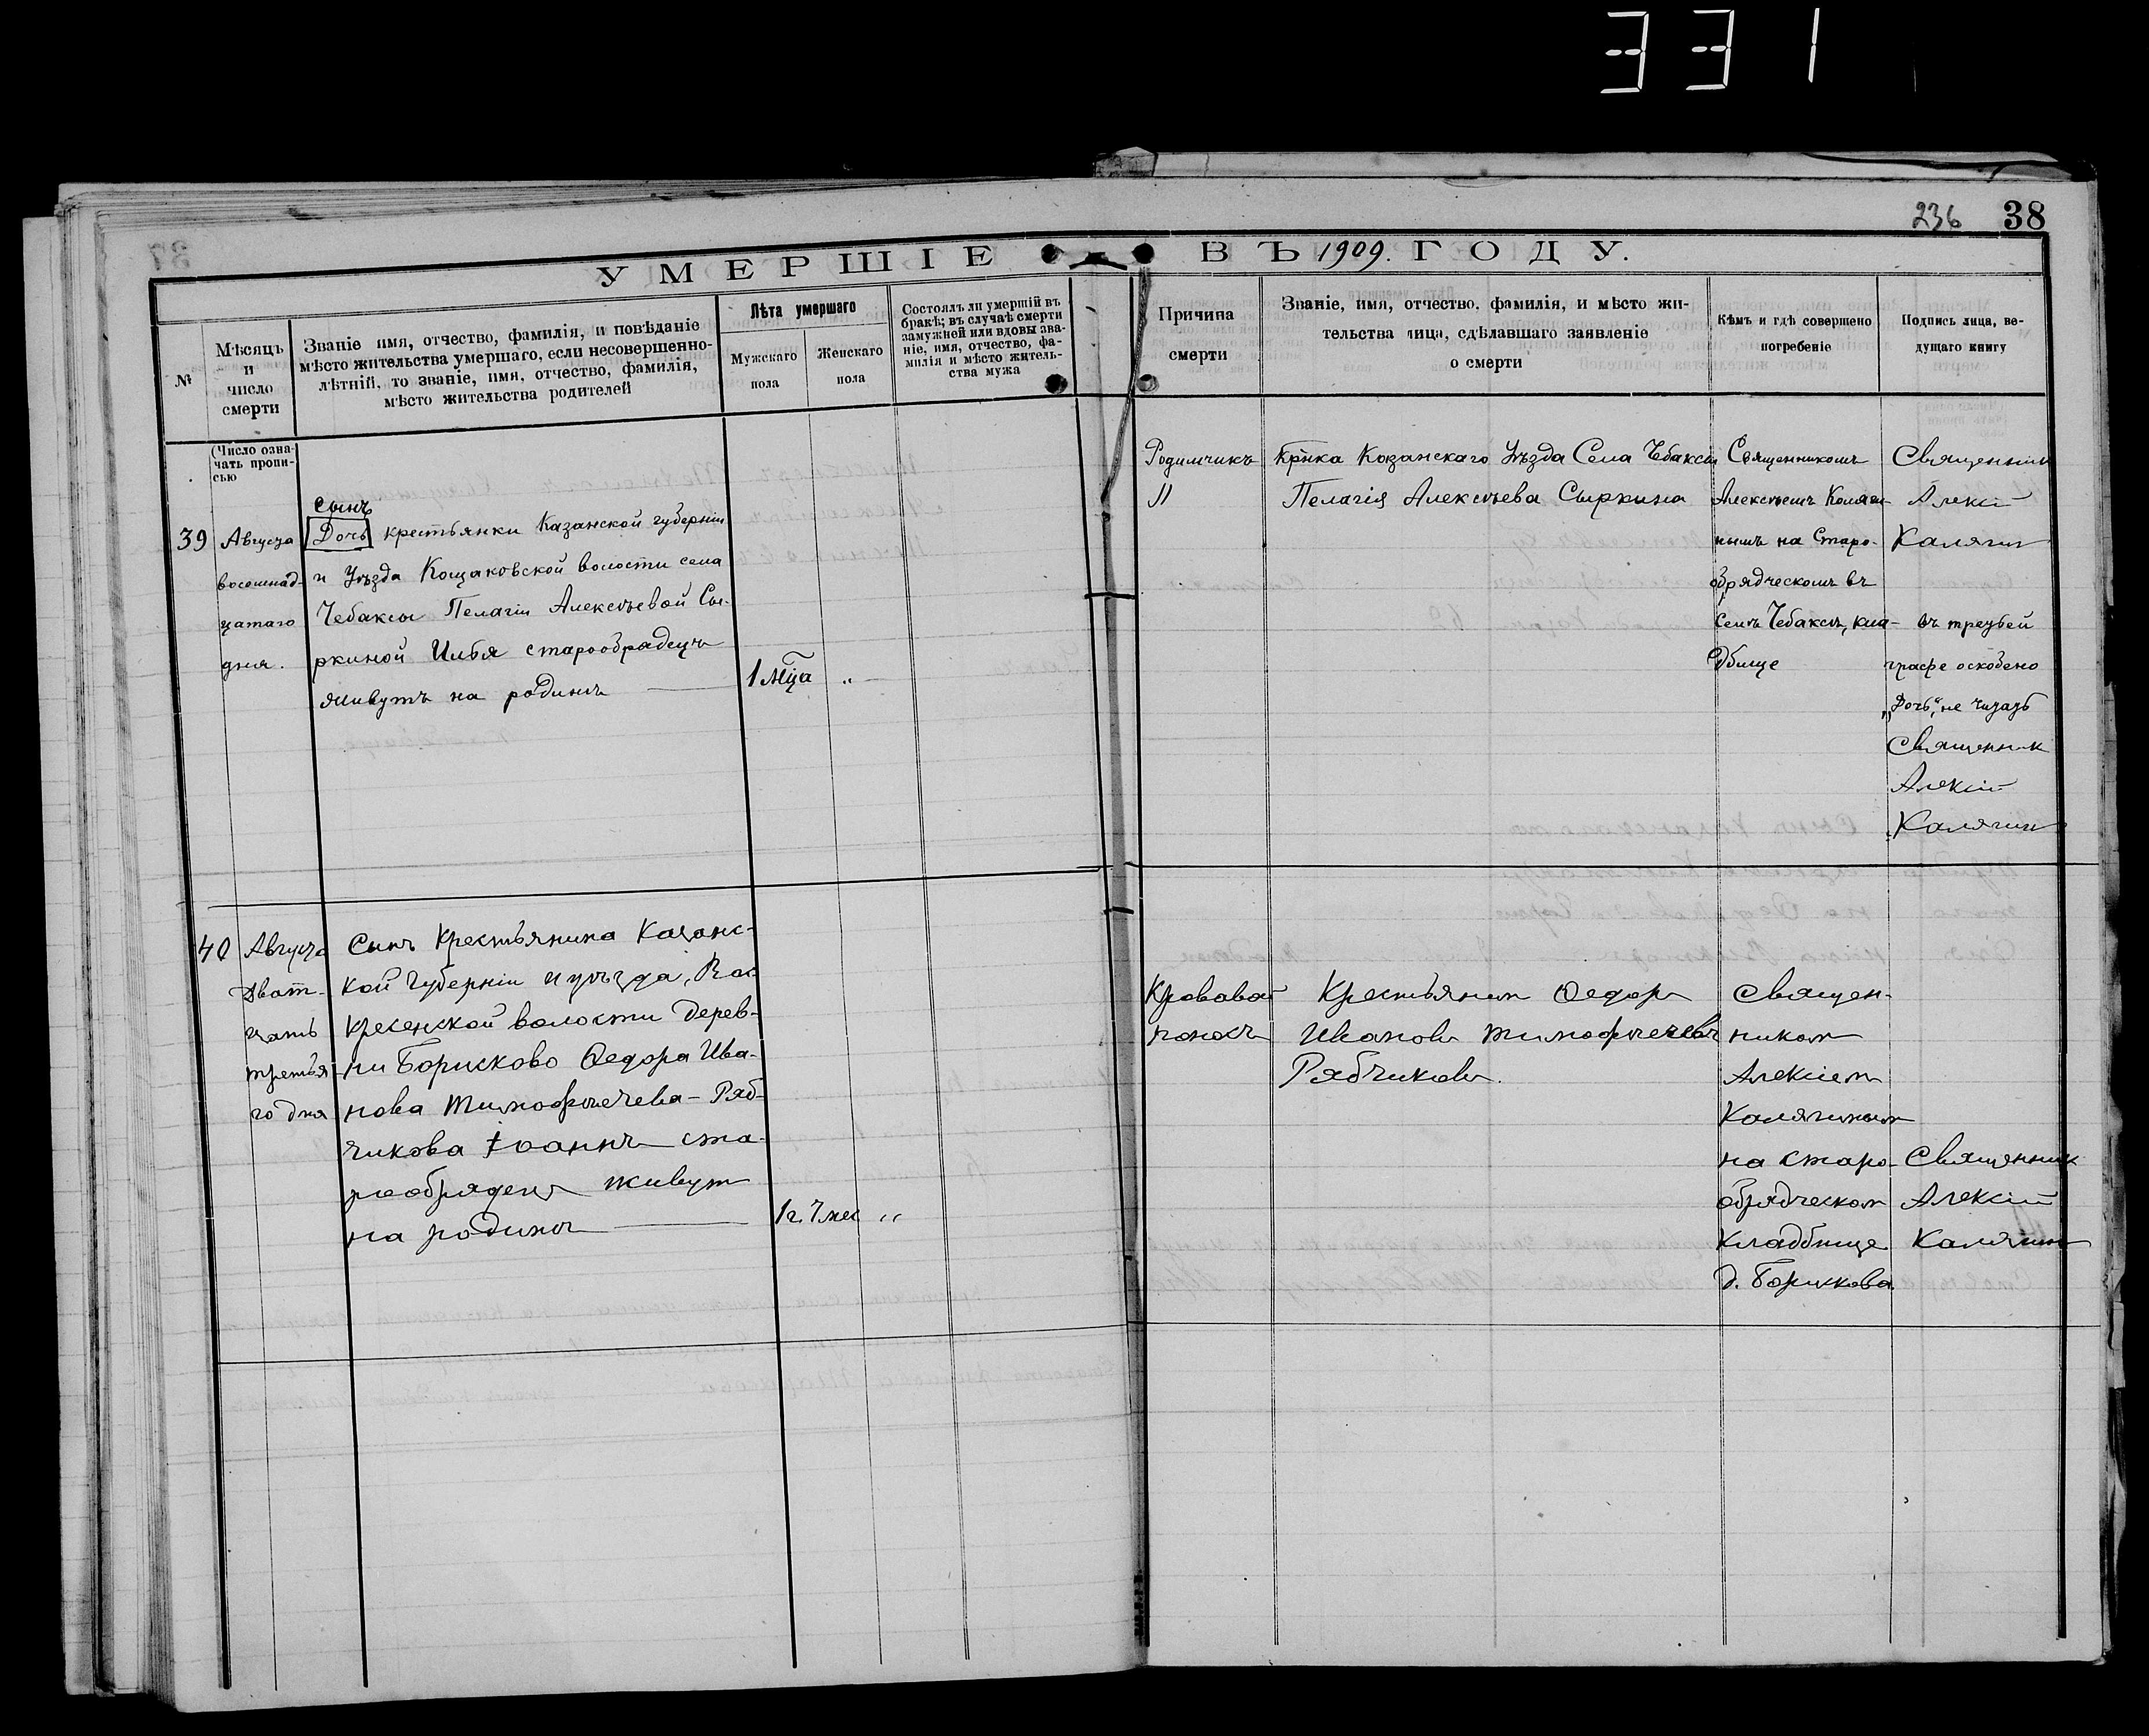 331
236 38
УМЕРШІЕ ВЪ 1909. ГОДУ.
№
Мѣсяцъ
и
число
смерти
Званіе имя, отчество, фамилія, и повѣданіе
мѣсто жительства умершаго, если несовершенно-
лѣтній, то званіе, имя, отчество, фамилія,
мѣсто жительства родителей
Лѣта умершаго
Мужскаго
пола
Женскаго
пола
Состоялъ ли умершій въ
бракѣ; въ случаѣ смерти
замужней или вдовы зва-
ніе, имя, отчество, фа-
милія и мѣсто житель-
ства мужа
Причина
смерти
Званіе, имя, отчество, фамилія, и мѣсто жи-
тельства лица, сдѣлавшаго заявленіе
о смерти
Кѣмъ и гдѣ совершено
погребеніе
Подпись лица, ве-
дущаго книгу
(Число озна-
чать пропи-
сью
39
Августа
восемнад-
цатаго
дня.
сынъ
Дочь крестьянки Казанской губерніи
и уѣзда Кощаковской волости села
Чебаксы Пелагіи Алексѣевой Сы-
ркиной Илья старообрадецъ
живутъ на родинѣ
1 мца "
Родимчикъ
"
Крнка Казанскаго Уѣзда Села Чебаксы
Пелагія Алексѣева Сыркина
Священникомъ
Алексѣемъ Каляги-
нымъ на Старо-
обрядческомъ въ
Селѣ Чебаксѣ, кла-
дбище
Священник
Алексій
Калягин
въ третьей
графе оскоблено
„Дочь", не читать
Священник
Алексій
Калягин
40
Августа
Дват-
цать
третья-
го дня
Сынъ Крестьянина Казанс-
кой Губерніи и уѣзда, Вос-
кресенской волости Дерев-
ни Борисково Ѳедора Ива-
нова Тимофѣечева - Ряб-
чикова Іоаннъ ста-
рообрядецъ живут
на родинѣ
1 г. 7 мес "
Кровавой
поносъ
Крестьянин Ѳедоръ
Ивановъ Тимофѣечевъ
Рябчиковъ.
Священ-
ником
Алексіем
Калягиным
на старо-
обрядческом
кладбище
д. Борискова.
Священник
Алексій
Калягин